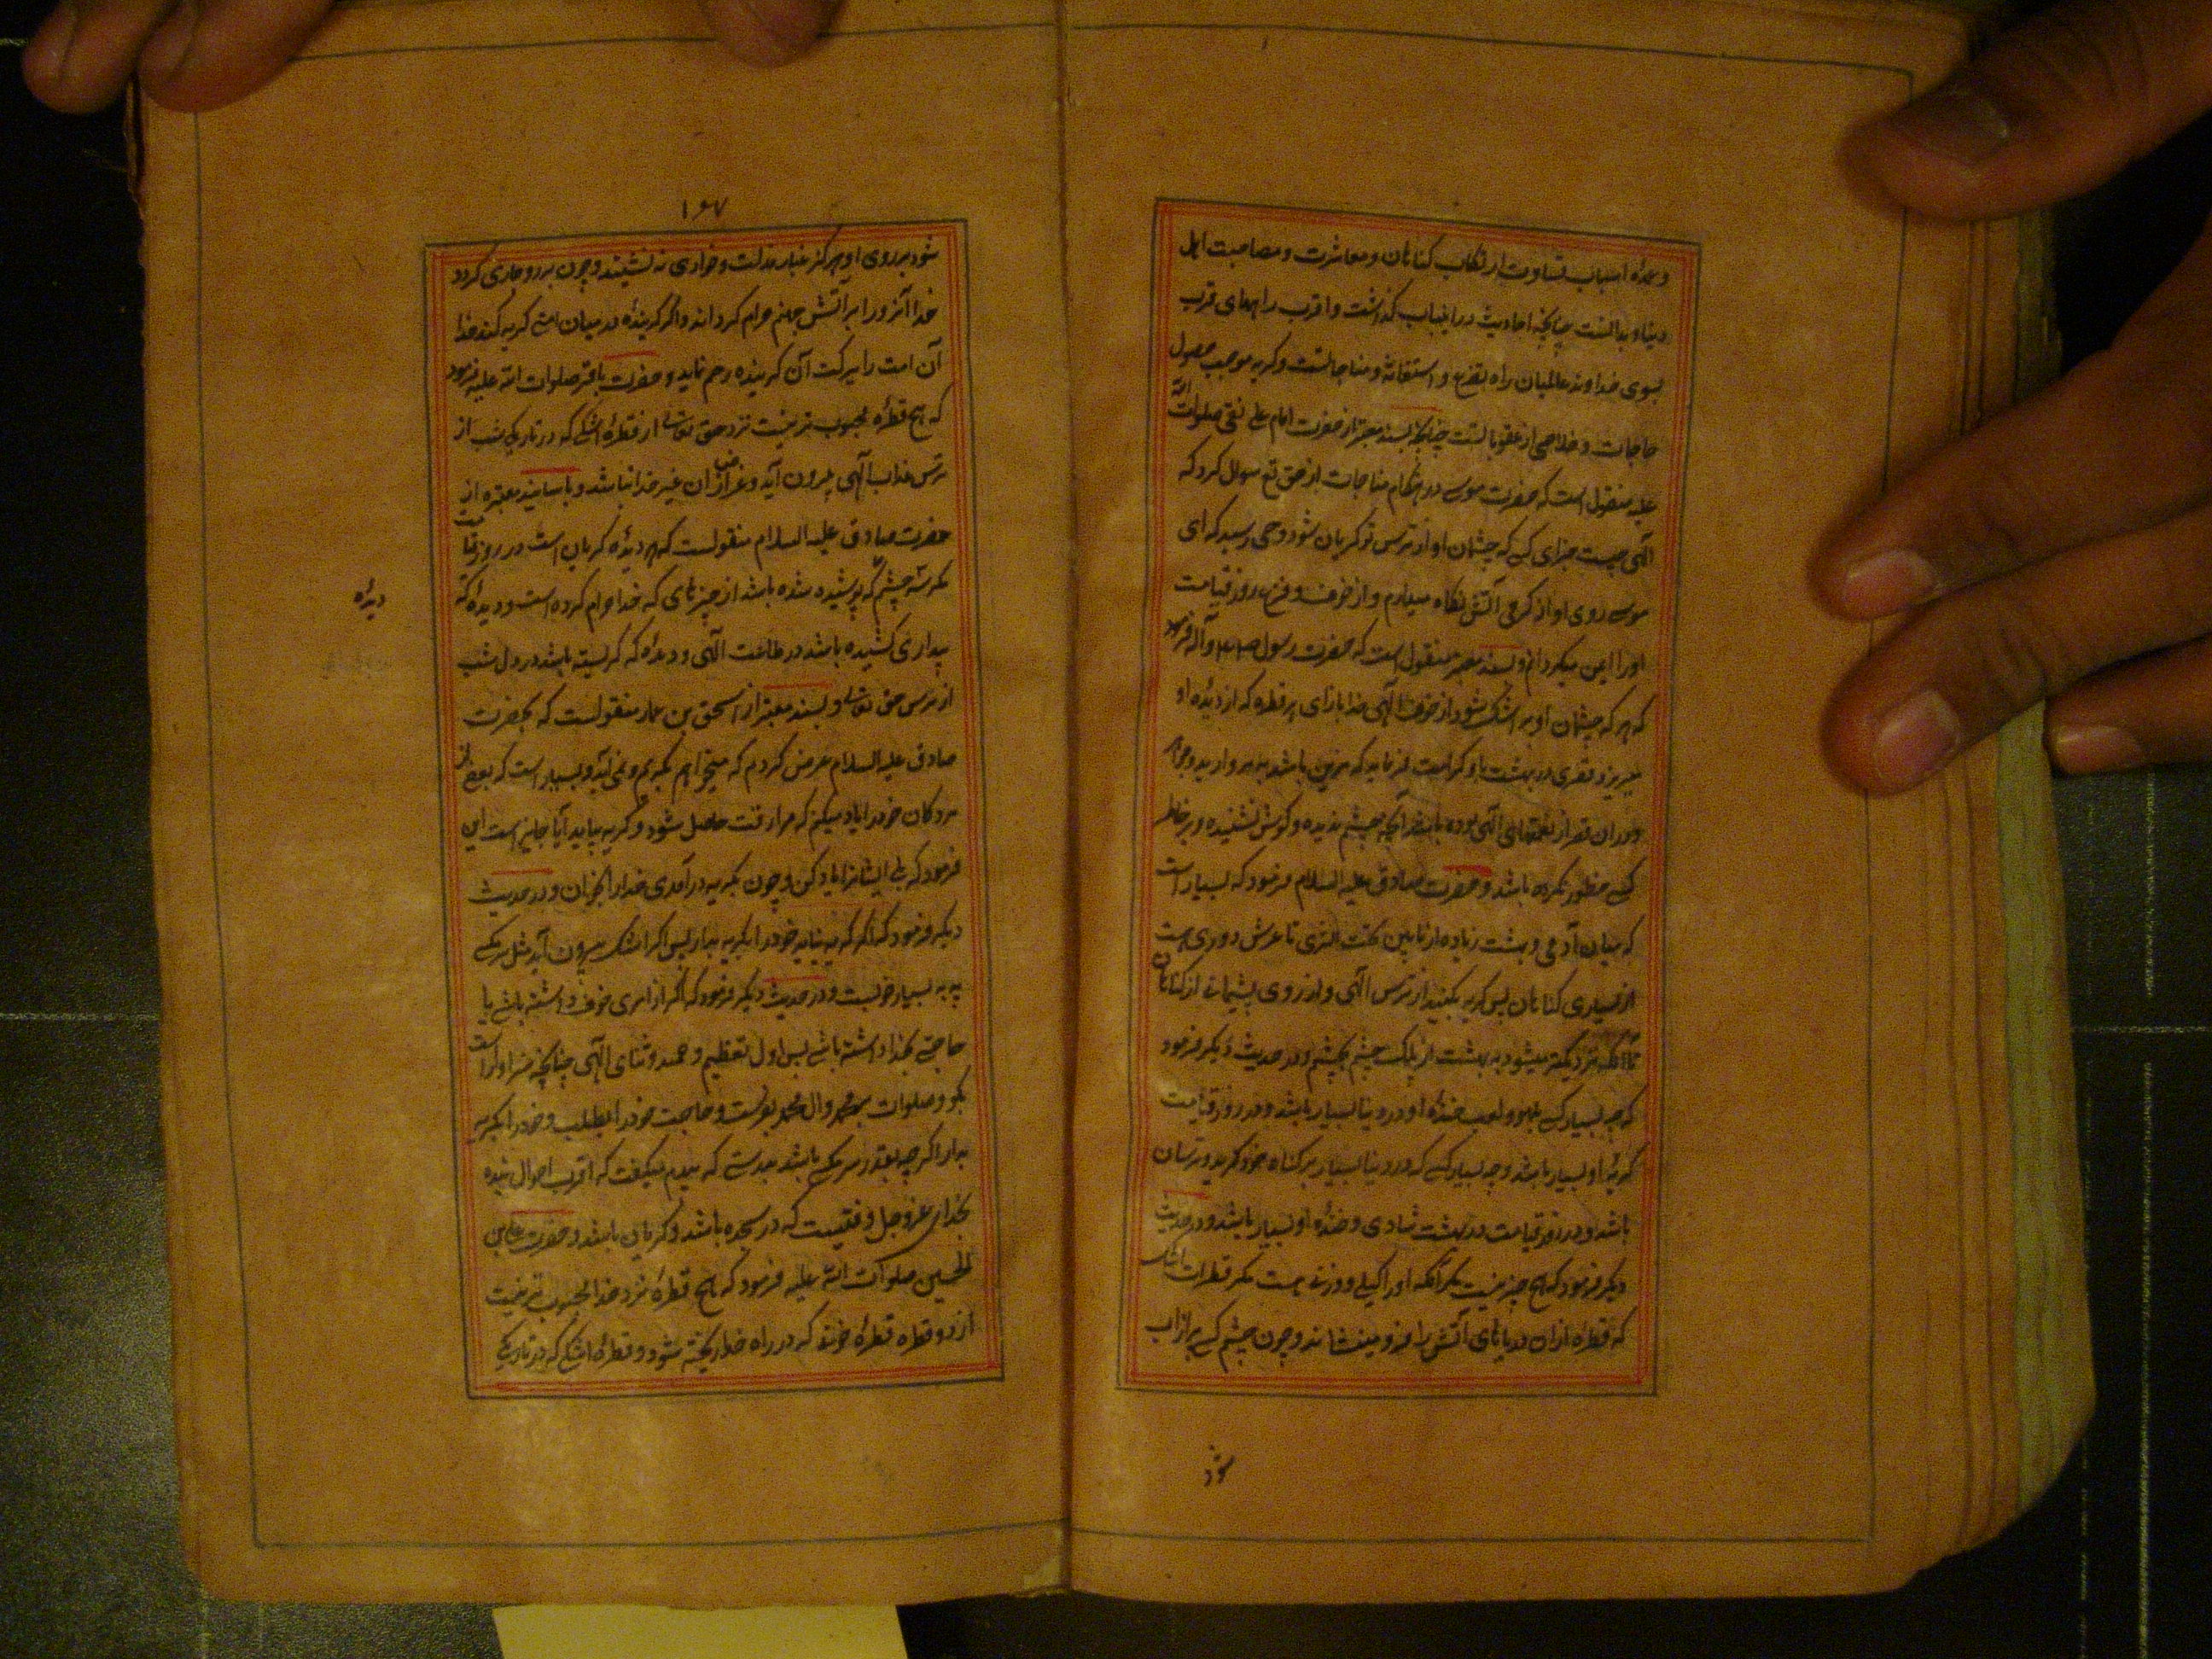 وعمده اسباب قساوت ارتکاب کناهان ومعاشرت ومصاحبت اهل
دنیا وبدانست چنانچه احادیث دراینباب کذشت واقرب راههای قرب
بسوی خداوند عالمیان راه تضرع واستغاثه ومناجاتست وکریه موجب حصول
حاجات وخلاصی از عقوباتست چنانچه بسند معتبر از حضرت امام علی نقی صلوات الله
علیه منقول است که حضرت موسی در هنکام مناجات از حق تع سوال کرد که
الهی چیست جزای کسی که چشمان او از ترس تو کریان شود وحی رسید که ای
موسی روی او از کرمی آتش نکاه میدارم واز خوف وفزع روز قیامت
اورا ایمن میکردانم وبسند معتبر منقول است که حضرت رسول ص وآله فرمود
که هر که چشمان او پر اشک شود از خوف الهی خدا بازای هر قطره که از دیده او
بریزد قصری در بهشت باو کرامت فرماید که مزین باشد بمروارید وجواهر
ودران قصر از نعمتهای الهی بوده باشد آنچه چشم ندیده وکوش نشنیده وبر خاطر
کسی خطور نکرده باشد وحضرت صادق علیه السلام فرمود که بسیار است
که میان آدمی وبهشت زیاده از مابین تحت الثری تا عرش دوری هست
از بسیاری کناهان پس کریه میکنید از ترس الهی واز روی پشیمانی از کناهان
تا آنکه نزدیکتر میشود به بهشت از پلک چشم بچشم ودر حدیث دیکر فرمود
که چه بسیار کسی بلهو ولعب خنده او در دنیا بسیار باشد ودر روز قیامت
کریه او بسیار باشد وچه بسیار کسی که در دنیا بسیار بر کناه خود کرید وترسان
باشد ودر روز قیامت در بهشت شادی وخنده او بسیار باشد ودر حدیث
دیکر فرمود که هیچ چیز نیست مکر آنکه اورا کیلی ووزنی هست مکر قطرات اشک
که قطره ازان دریاهای آتش را فرو مینشاند وچون چشم کسی پر از آب
شود
۱۶۷
شود بر روی او هرکز غبار مذلت وخواری نه نشیند وچون بر رو جاری کردد
خدا آنرو را بر آتش جهنم حرام کرداند واکر کرینده در میان امتی کریه کند خدا
آن امت را ببرکت آن کرینده رحم نماید وحضرت باقر صلوات الله علیه فرمود
که هیچ قطره محبوب تر نیست نزد حق تعالی از قطره اشکی که در تاریکی شب از
ترس عذاب الهی بیرون آید وغرض ازان غیر خدا نباشد وباسانید معتبره از
حضرت صادق علیه السلام منقولست که هر دیده کریان است در روز قیامت
مکر سه چشم که پوشیده شده باشد از چیزهای که خدا حرام کرده است ودیده که
دیده
بیداری کشیده باشد در طاعت الهی ودیده که کریسته باشد در دل شب
از ترس حق تعالی وبسند معتبر از اسحق بن عمار منقولست که بحضرت
صادق علیه السلام عرض کردم که میخواهم بکریم ونمی آید وبسیار است که بعضی از
مردکان خودرا یاد میکنم که مرا رقت حاصل شود وکریه بیاید آیا جایز است این
فرمود که بلی ایشانرا یاد کن وچون بکریه درآمدی خدارا بخوان ودر حدیث
دیکر فرمود که اکر کریه نیاید خودرا بکریه بدار پس اکر اشک بیرون آید مثل سر مکسی
به به بسیار خوبست ودر حدیث دیکر فرمود که اکر از امری خوف داشته باشی یا
حاجتی بخدا داشته باشی پس اول تعظیم وحمد وثنای الهی چنانچه سزاوار است
بکو وصلوات بمحمد وال محمد بفرست وحاجت خودرا بطلب وخودرا بکریه
بدار اکر چه بقدر سر مکسی باشد بدرستی که پدرم میکفت که اقرب احوال بنده
بخدای عزوجل وقتیست که در سجده باشد وکریان باشد وحضرت علی بن
الحسین صلوات الله علیه فرمود که هیچ قطره نزد خدا محبوب تر نیست
از دو قطره قطره خونی که در راه خدا ریخته شود وقطره اشکی که در تاریکی